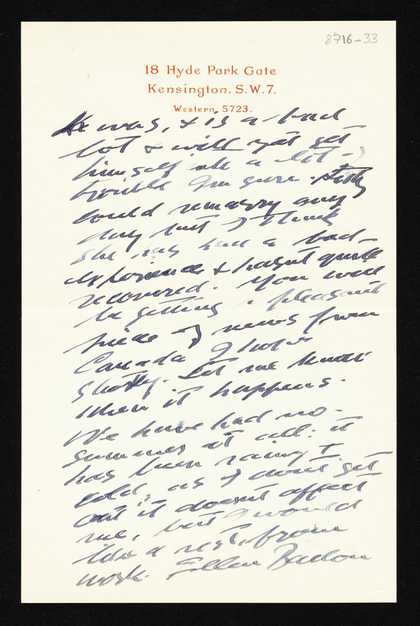 8716-33
18 Hyde Park Gate
Kensington. S.W.7.
Western. 5723.
He was, & is a bad
lot & will yet get
himself into a lot of
trouble I'm sure.
could remarry any
day but I think
she has had a bad
experience & hasn't quite
recovered. You will
be getting a pleasant
piece of news from
Canada I
shortly. Let me know
when it happens.
We have had no
summer at all: it
has been rainy &
cold, as I don't get
out it doesn't affect
me, but I would
like a rest from
work. Ellen